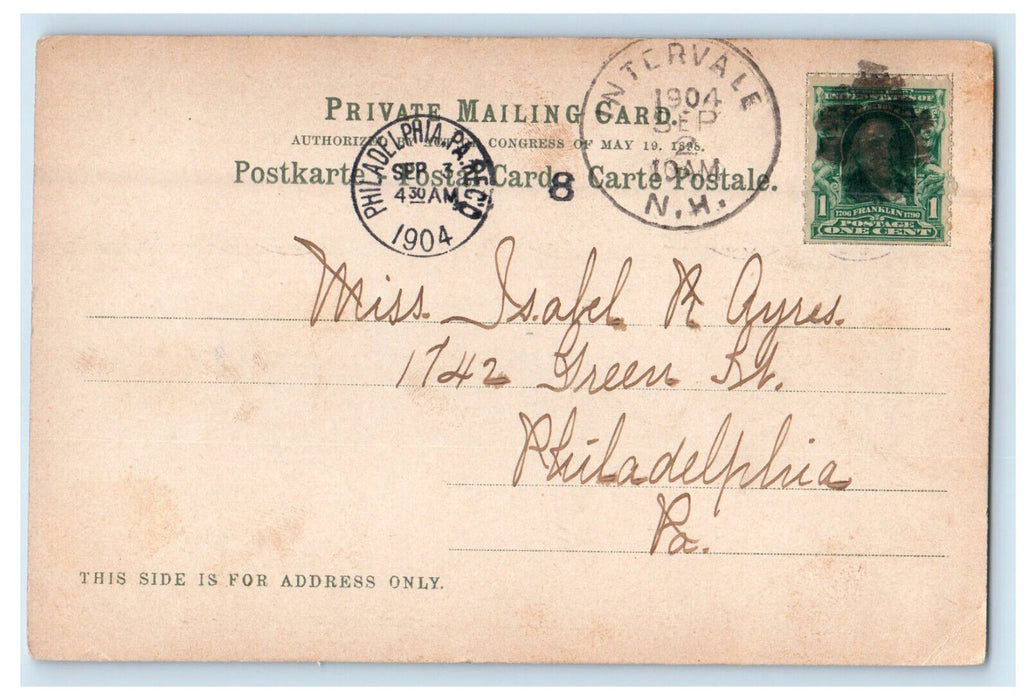 PRIVATE MAILING CARD.
AUTHORIZED BY ACT OF CONGRESS OF MAY 19, 1898.
Postkarte Postal Cards Carte Postale.
PHILADELPHIA, PA. REC'D
SEP 3
4 30 AM
1904
8
INTERVALE
1904
SEP
2
10 AM
N.H.
UNITED STATES OF
1 1706 FRANKLIN 1790 1
POSTAGE
ONE CENT
Miss. Isabel R Ayres.
1742 Green St.
Philadelphia
Pa.
THIS SIDE IS FOR ADDRESS ONLY.